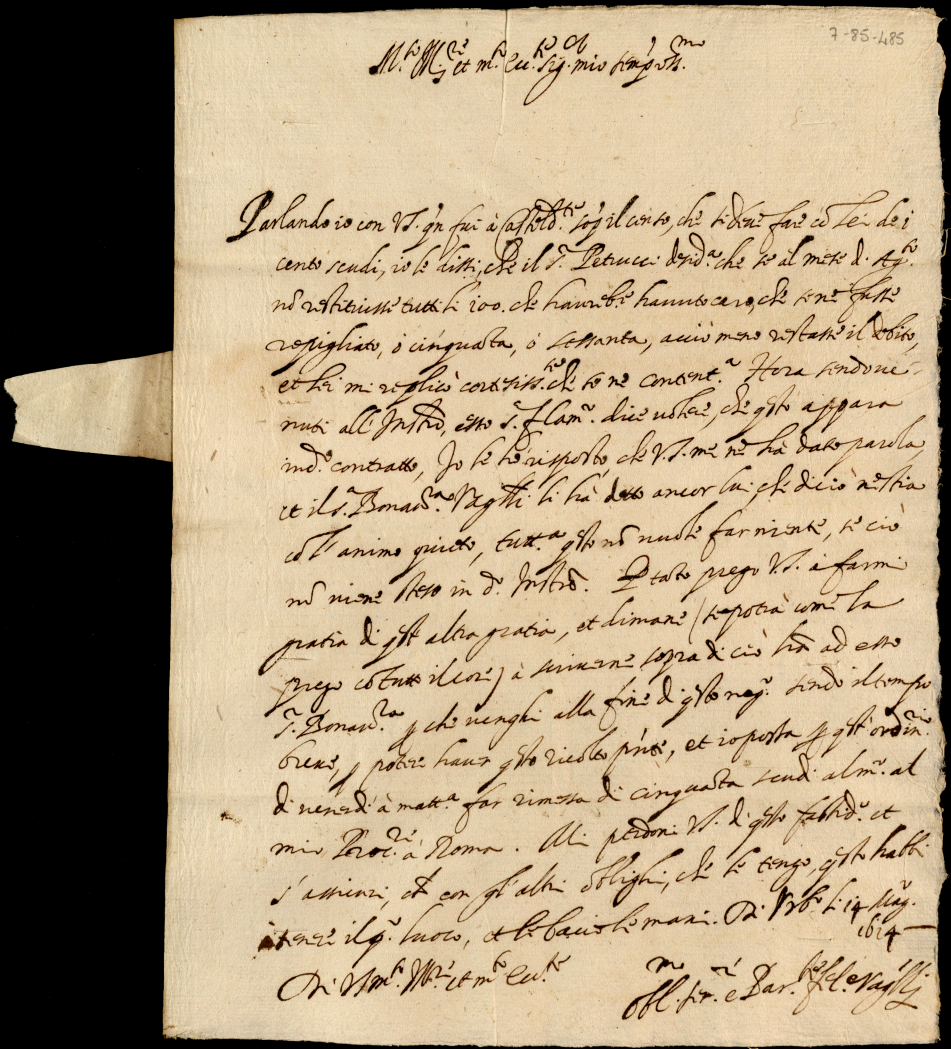 7-85-485
M.to Ill.re et m.to Ecc.te Sig.r mio sempre oss.mo
Parlando io con V.S. qn fui à sop.a il censo, che si deve fare cō Lei de i
cento scudi, io le dissi, che il S.r Petrucci desid.a che se al mese di Ag.to
nō restituisse tutti li 100. che haurebbe havuto caro, che se ne fusse
repigliato, ò cinquāta, ò sessanta, acciò meno restasse il debito,
et lei mi replicò cortesiss.te che se ne content.a Hora sendo ve-
nuti all' Instrō, esso S.r Flam.o dice volere, che qsto appara
in d.o contratto, Io le hò risposto, che V.S. me ne hà dato parola,
et il S.r Bonav.ra Vagnli li hà detto ancor lui che di ciò ne stia
cō l'animo quieto, tutt.a qsto nō vuole far niente, se ciò
nō viene steso in d.o Instrō. P tāto prego V.S. à farmi
gratia di qst' altra gratia, et dimane (se potrà come la
prego cō tutto il core) à scriverne sopra di ciò ad esso
S.r Bonav.ra p che venghi alla fine di qsto neg.o sendo il tempo
breve, p poter haver qsto ricolto pnte, et io possa p qst' ordin.o
di venerdì à matt.a far rimessa di cinquāta scudi al m.o al
mio Proc.re à Roma. Mi perdoni V.S. di qsto fastid.o et
s'assicuri, ch con gl' altri oblighi, che le tengo, qsto habbi
tenere il p.o luoco, et le bacio le mani. Di Urb.o li 14 Mag.o
1624
Di V.S. m.to Ill.re et m.to Ecc.te
Obl.mo ser.re e Par.te